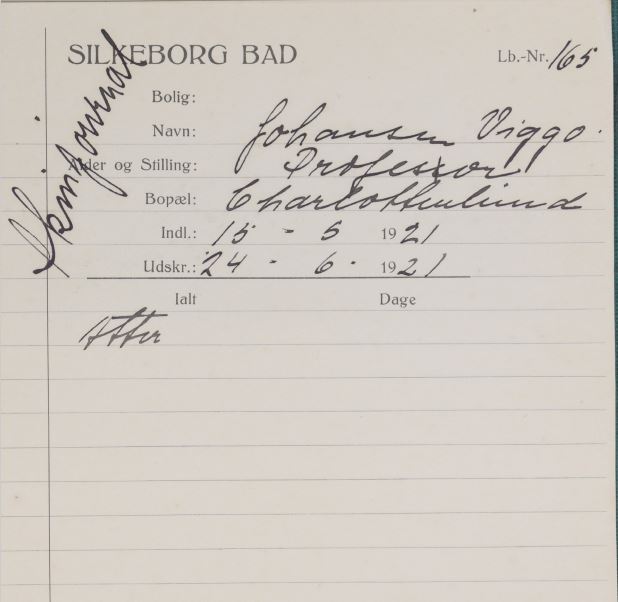 SILKEBORG BAD Lb.-Nr. 165
Skinjournal
Bolig:
Navn: Johansen Viggo.
Alder og Stilling: Professor
Bopæl: Charlottenlund
Indl.: 15 - 5 1921
Udskr.: 24 - 6 - 1921
Ialt Dage
Atter